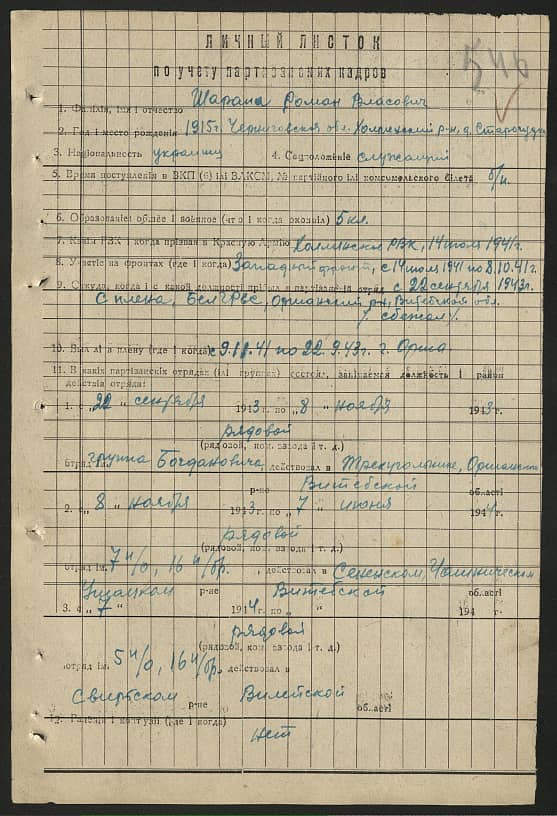 546
ЛИЧНЫЙ ЛИСТОК
по учету партизанских кадров
1. Фамілія, імя і отчество Шарапа Роман Власович
2. Год і место рождения 1915 г. Черниговская обл. Холменский р-н, д.
3. Національность украинец 4. Соцположеніе служащий
5. Время поступления в ВКП (б) ілі ВЛКСМ, № партійного ілі комсомольского білета б/п.
6. Образованіе общее і военное (что і когда окончіл) 5 кл.
7. Какім РВК і когда прізван в Красную Армію Холминский РВК, 14 июля 1941 г.
8. Участіе на фронтах (где і когда) Западный фронт, с 14 июля 1941 по 8.10.41 г.
9. Откуда, когда і с какой должності прібыл в партізанскій отряд с 22 сентября 1943 г.
С плена, Оршанский р-н, Витебская обл.
/ сбежал /.
10. Был лі в плену (где і когда) с 9.11.41 по 22.9.43 г. г. Орша
11. В какіх партізанскіх отрядах (ілі группах) состоял, занімаемая должность і район
действія отряда:
1. с „22“ сентября 1943 г. по „8“ ноября 1943 г.
рядовой
(рядовой, ком. взвода і т. д.)
отряд ім. группа Богдановича, действовал в Треугольнике,
р-не Витебской області
2. с „8“ ноября 1943 г. по „7“ июня 1944 г.
рядовой
(рядовой, ком. взвода і т. д.)
отряд ім. 7 п/о, 16 п/бр. , действовал в Сененском, Чашникском
Ушацком р-не Витебской області
3. с „7“ 1944 г. по „ “ 194 г.
рядовой
(рядовой, ком. взвода і т. д.)
отряд ім. 5 п/о, 16 п/бр., действовал в
Свирьском р-не Вилейской області
12. Раненія і контузіі (где і когда)
нет